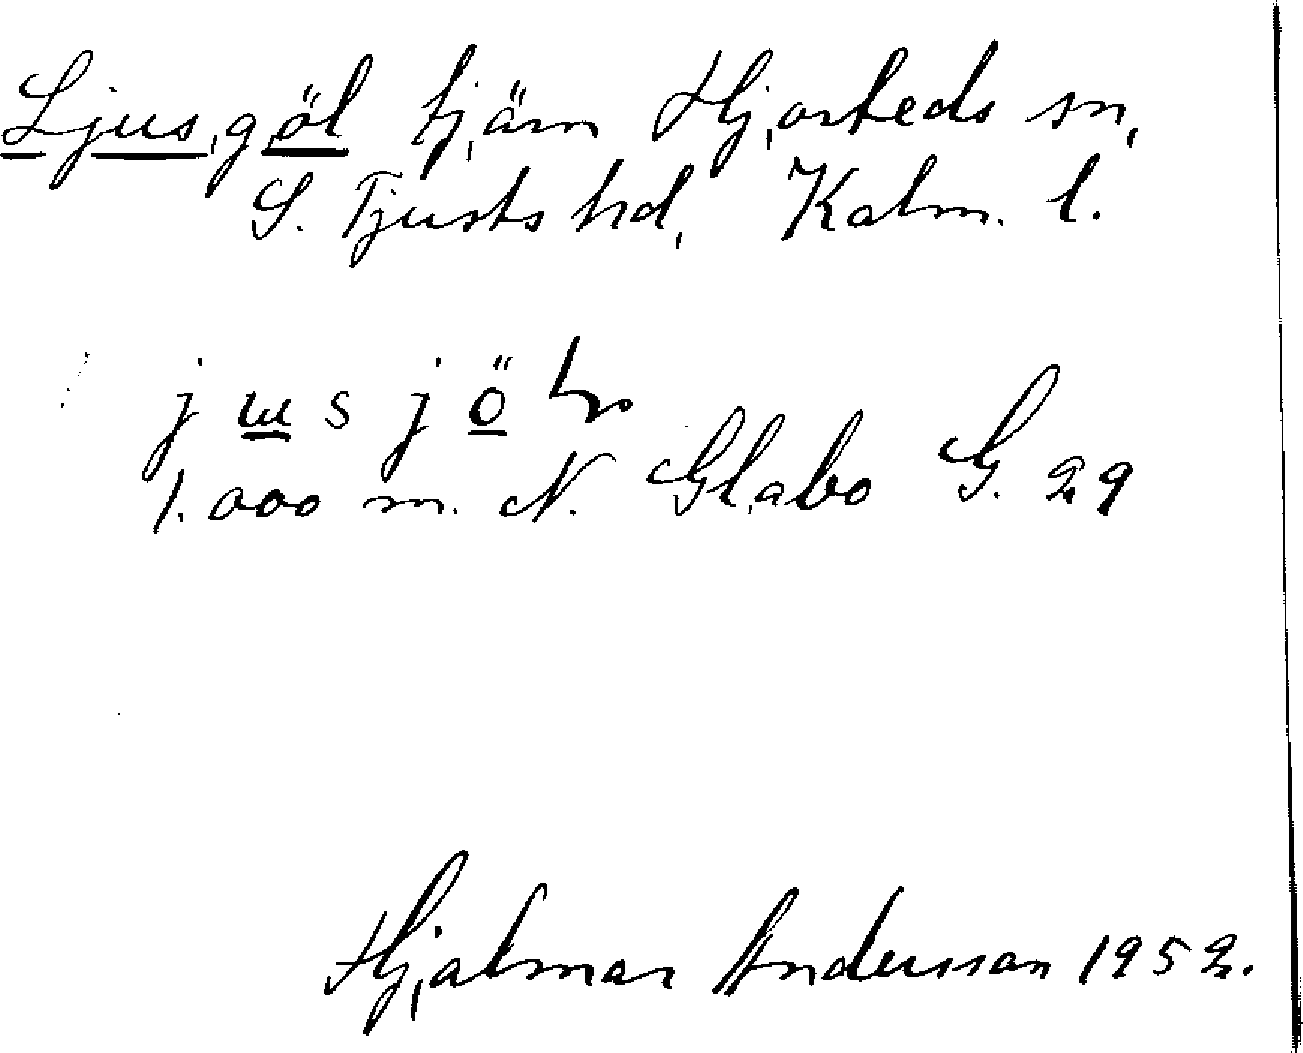 Ljusgöl tjärn Hjorteds sn,
S. Tjusts hd, Kalm. l.
j ɯ s j ö
1.000 m. N. Glabo G. 29
Hjalmar Andersson 1952.